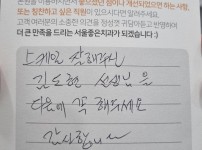 본원을 이용하시면서 좋았던 점이나 개선되었으면 하는 사항,
또는 칭찬하고 싶은 직원이 있으시다면 말씀해주세요.
고객 여러분의 소중한 의견을 정성껏 귀담아듣고 반영하여
더 큰 만족을 드리는 서울좋은치과가 되겠습니다 :)
스케일 잘해주는
김도현 선생님을
다음에 꼭 해주세요
감사합니다